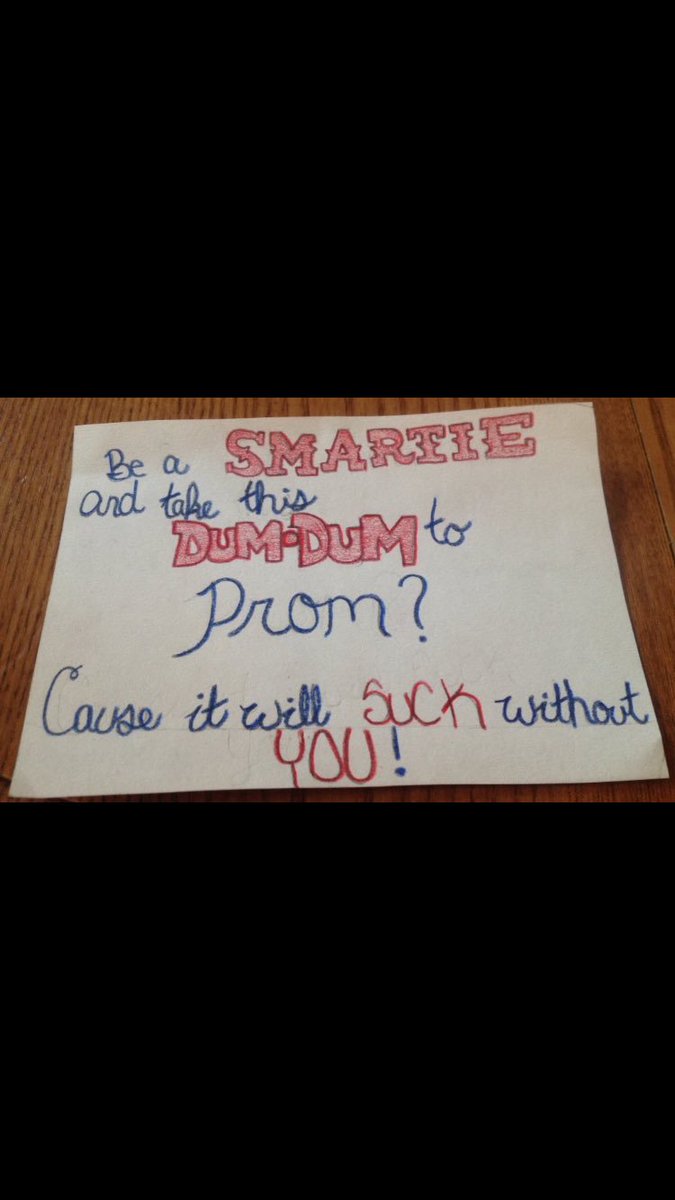 Be a SMARTIE
and take this
DUM•DUM to
Prom?
Cause it will SUCK without
YOU!